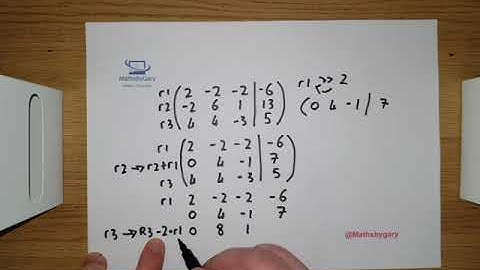 MathsbyGary
r1 ( 2 -2 -2 | -6 )
r2 ( -2 6 1 | 13 )
r3 ( 4 4 -3 | 5 )
r1 -> 2
( 0 4 -1 | 7
r1 ( 2 -2 -2 | -6 )
r2 → r2+r1 ( 0 4 -1 | 7 )
r3 ( 4 4 -3 | 5 )
r1 2 -2 -2 -6
0 4 -1 7
r3 → R3-2·r1 0 8 1
@Mathsbygary